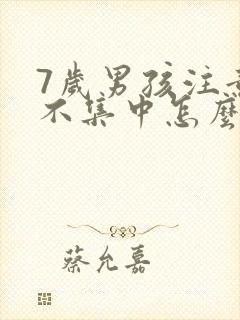 7歲男孩注
不集中怎麼
蔡允嘉